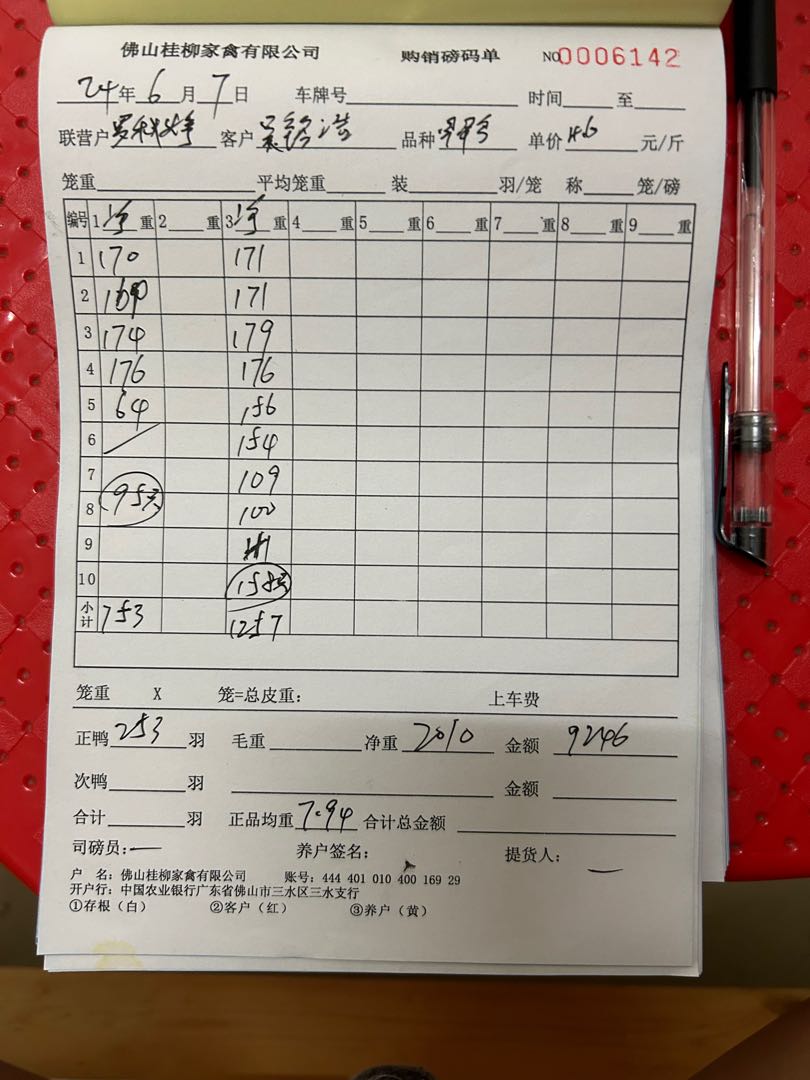 佛山桂柳家禽有限公司 购销磅码单 NO0006142
24年6月7日 车牌号 时间 至
联营户 客户 品种 单价4.6元/斤
笼重 平均笼重 装 羽/笼 称 笼/磅
编号 1净重 2 重 3净重 4 重 5 重 6 重 7 重 8 重 9 重
1 170 171
2 171
3 174 179
4 176 176
5 64 156
6 154
7 109
95只
8 100
9
10 158只
小计 753 1257
笼重 X 笼=总皮重: 上车费
正鸭253羽 毛重 净重2010 金额9246
次鸭 羽 金额
合计 羽 正品均重7.94 合计总金额
司磅员: 养户签名: 提货人:
户 名: 佛山桂柳家禽有限公司 账号: 444 401 010 400 169 29
开户行: 中国农业银行广东省佛山市三水区三水支行
①存根(白) ②客户(红) ③养户(黄)